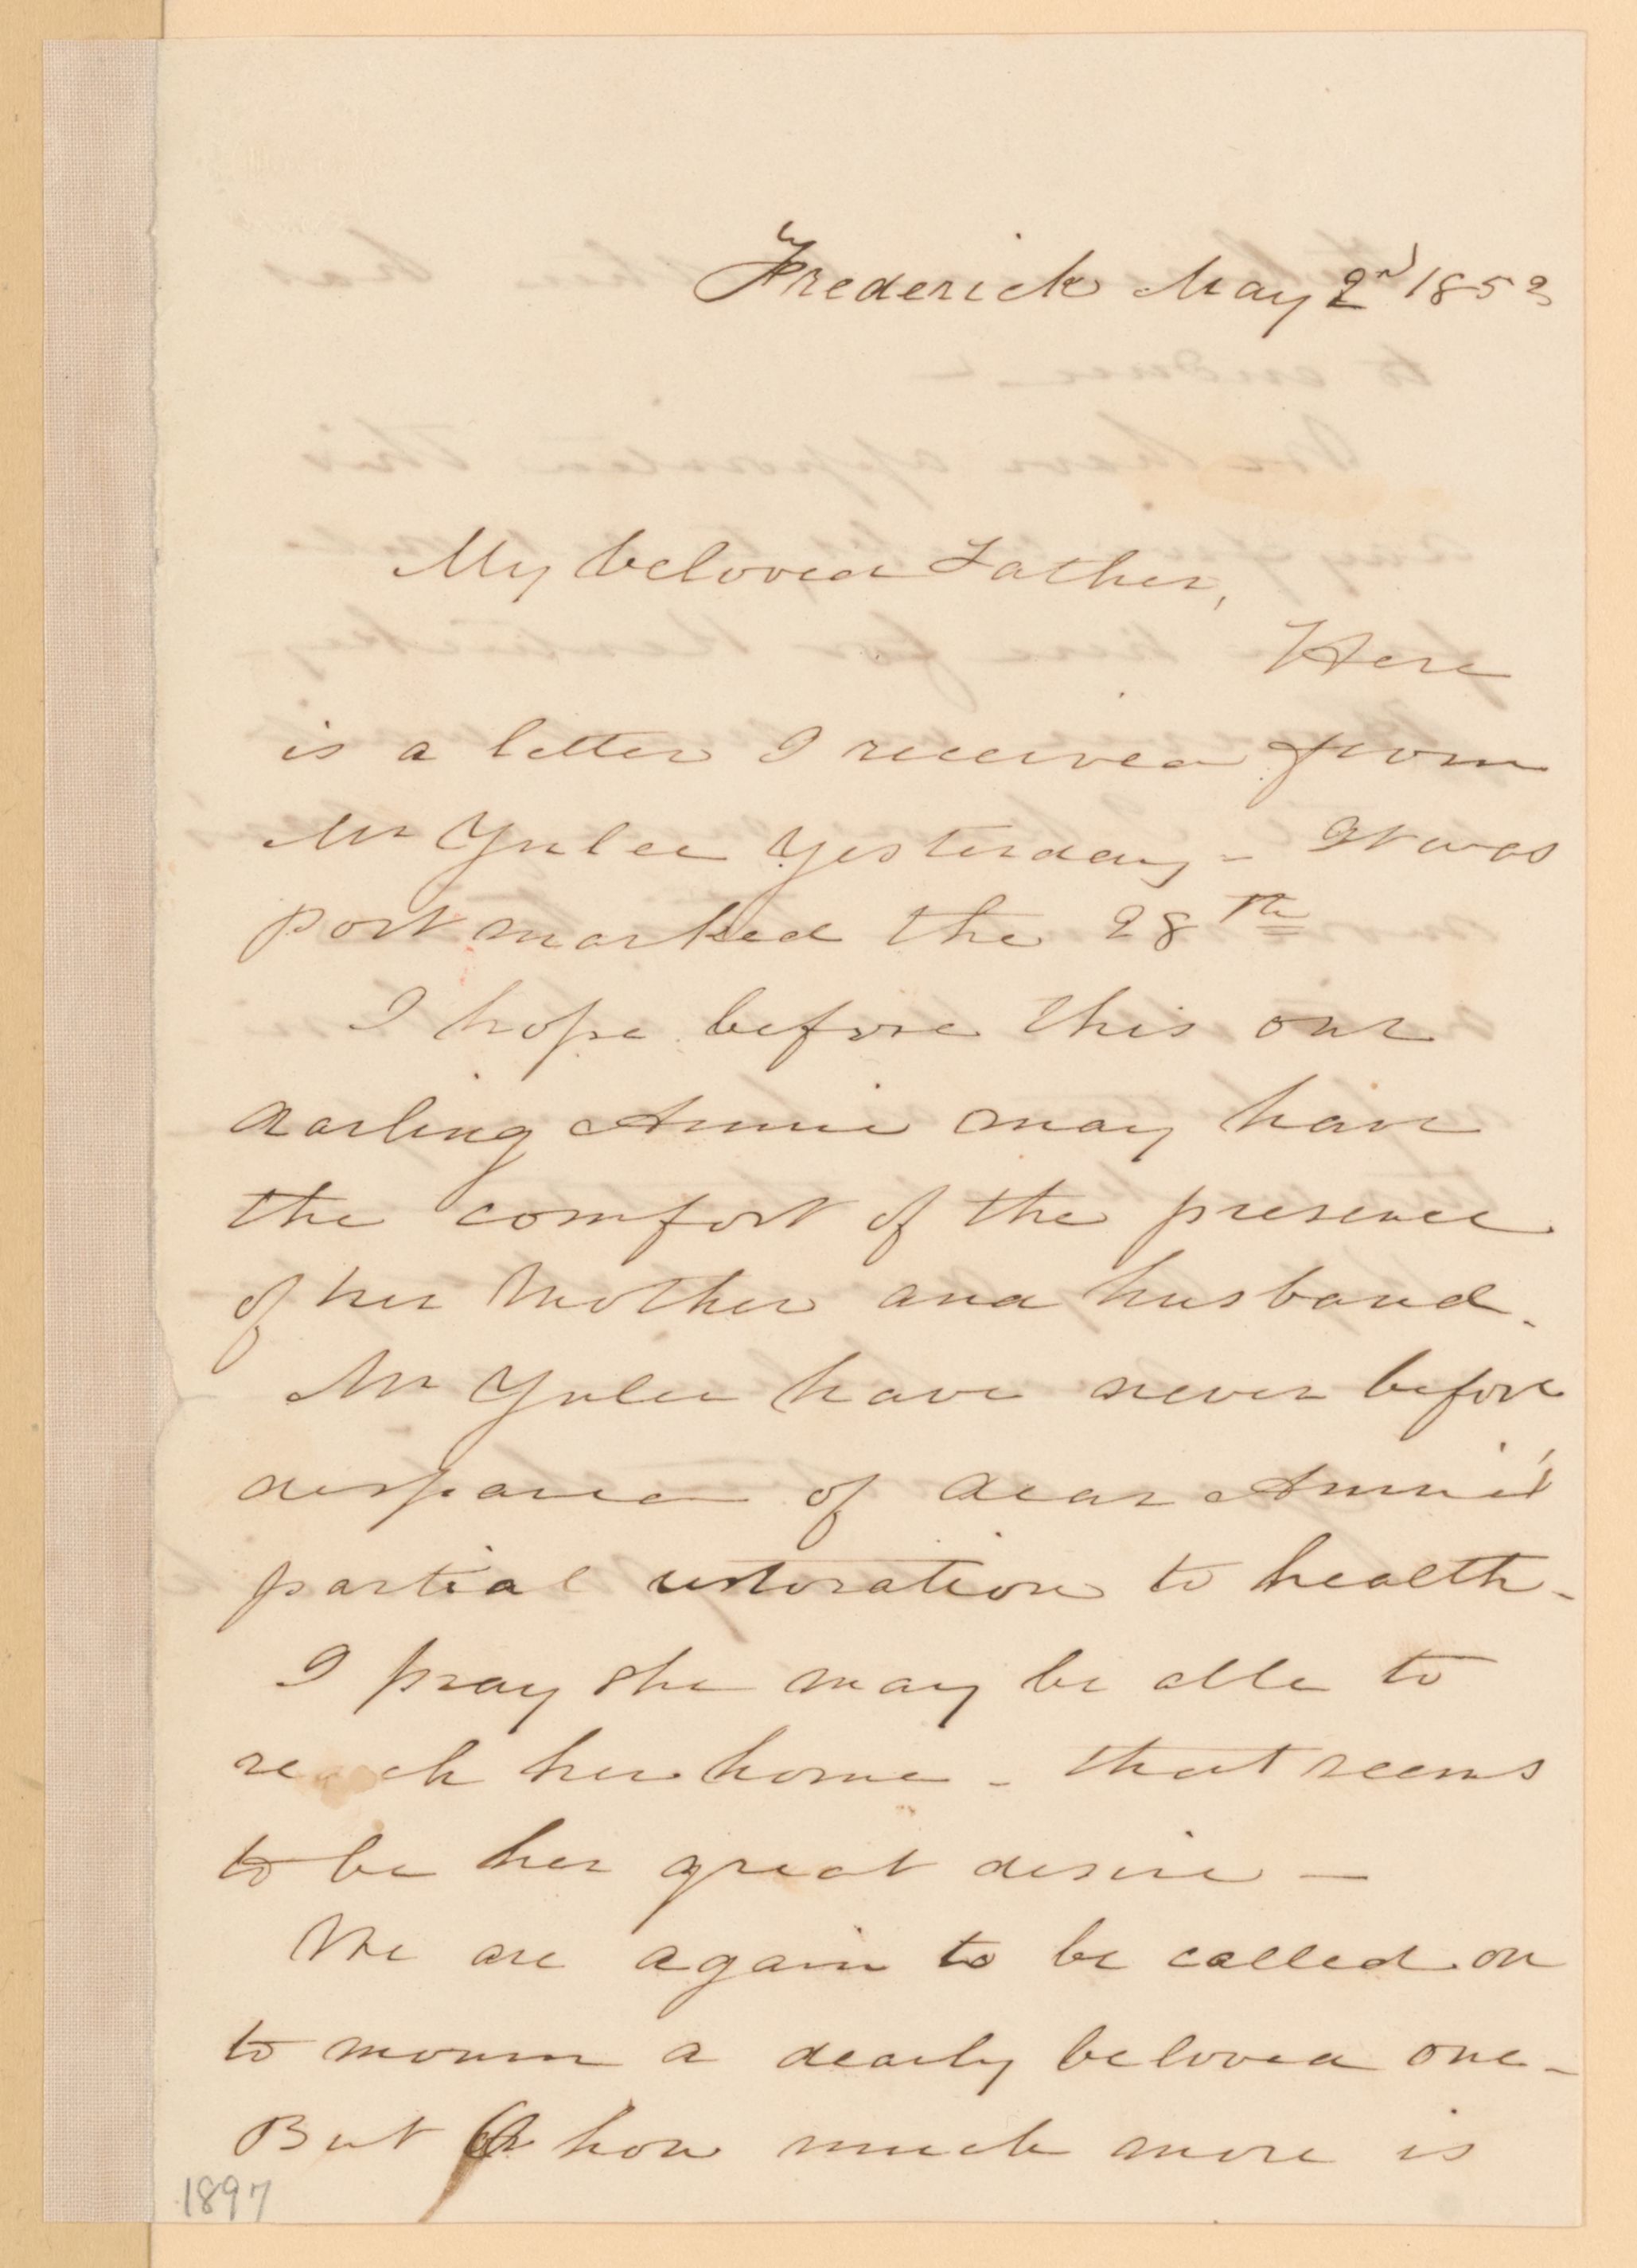 Frederick May 2nd 1853
My beloved Father,
Here
is a letter I received from
Mr Yulee yesterday - It was
post marked the 28th
I hope before this our
darling Annie may have
the comfort of the presence
of her Mother and husband.
Mr Yulee have never before
despaired of dear Annie's
partial restoration to health -
I pray she may be able to
reach her home - that seems
to be her great desire —
We are again to be called on
to mourn a dearly beloved one -
But how much more is
1897